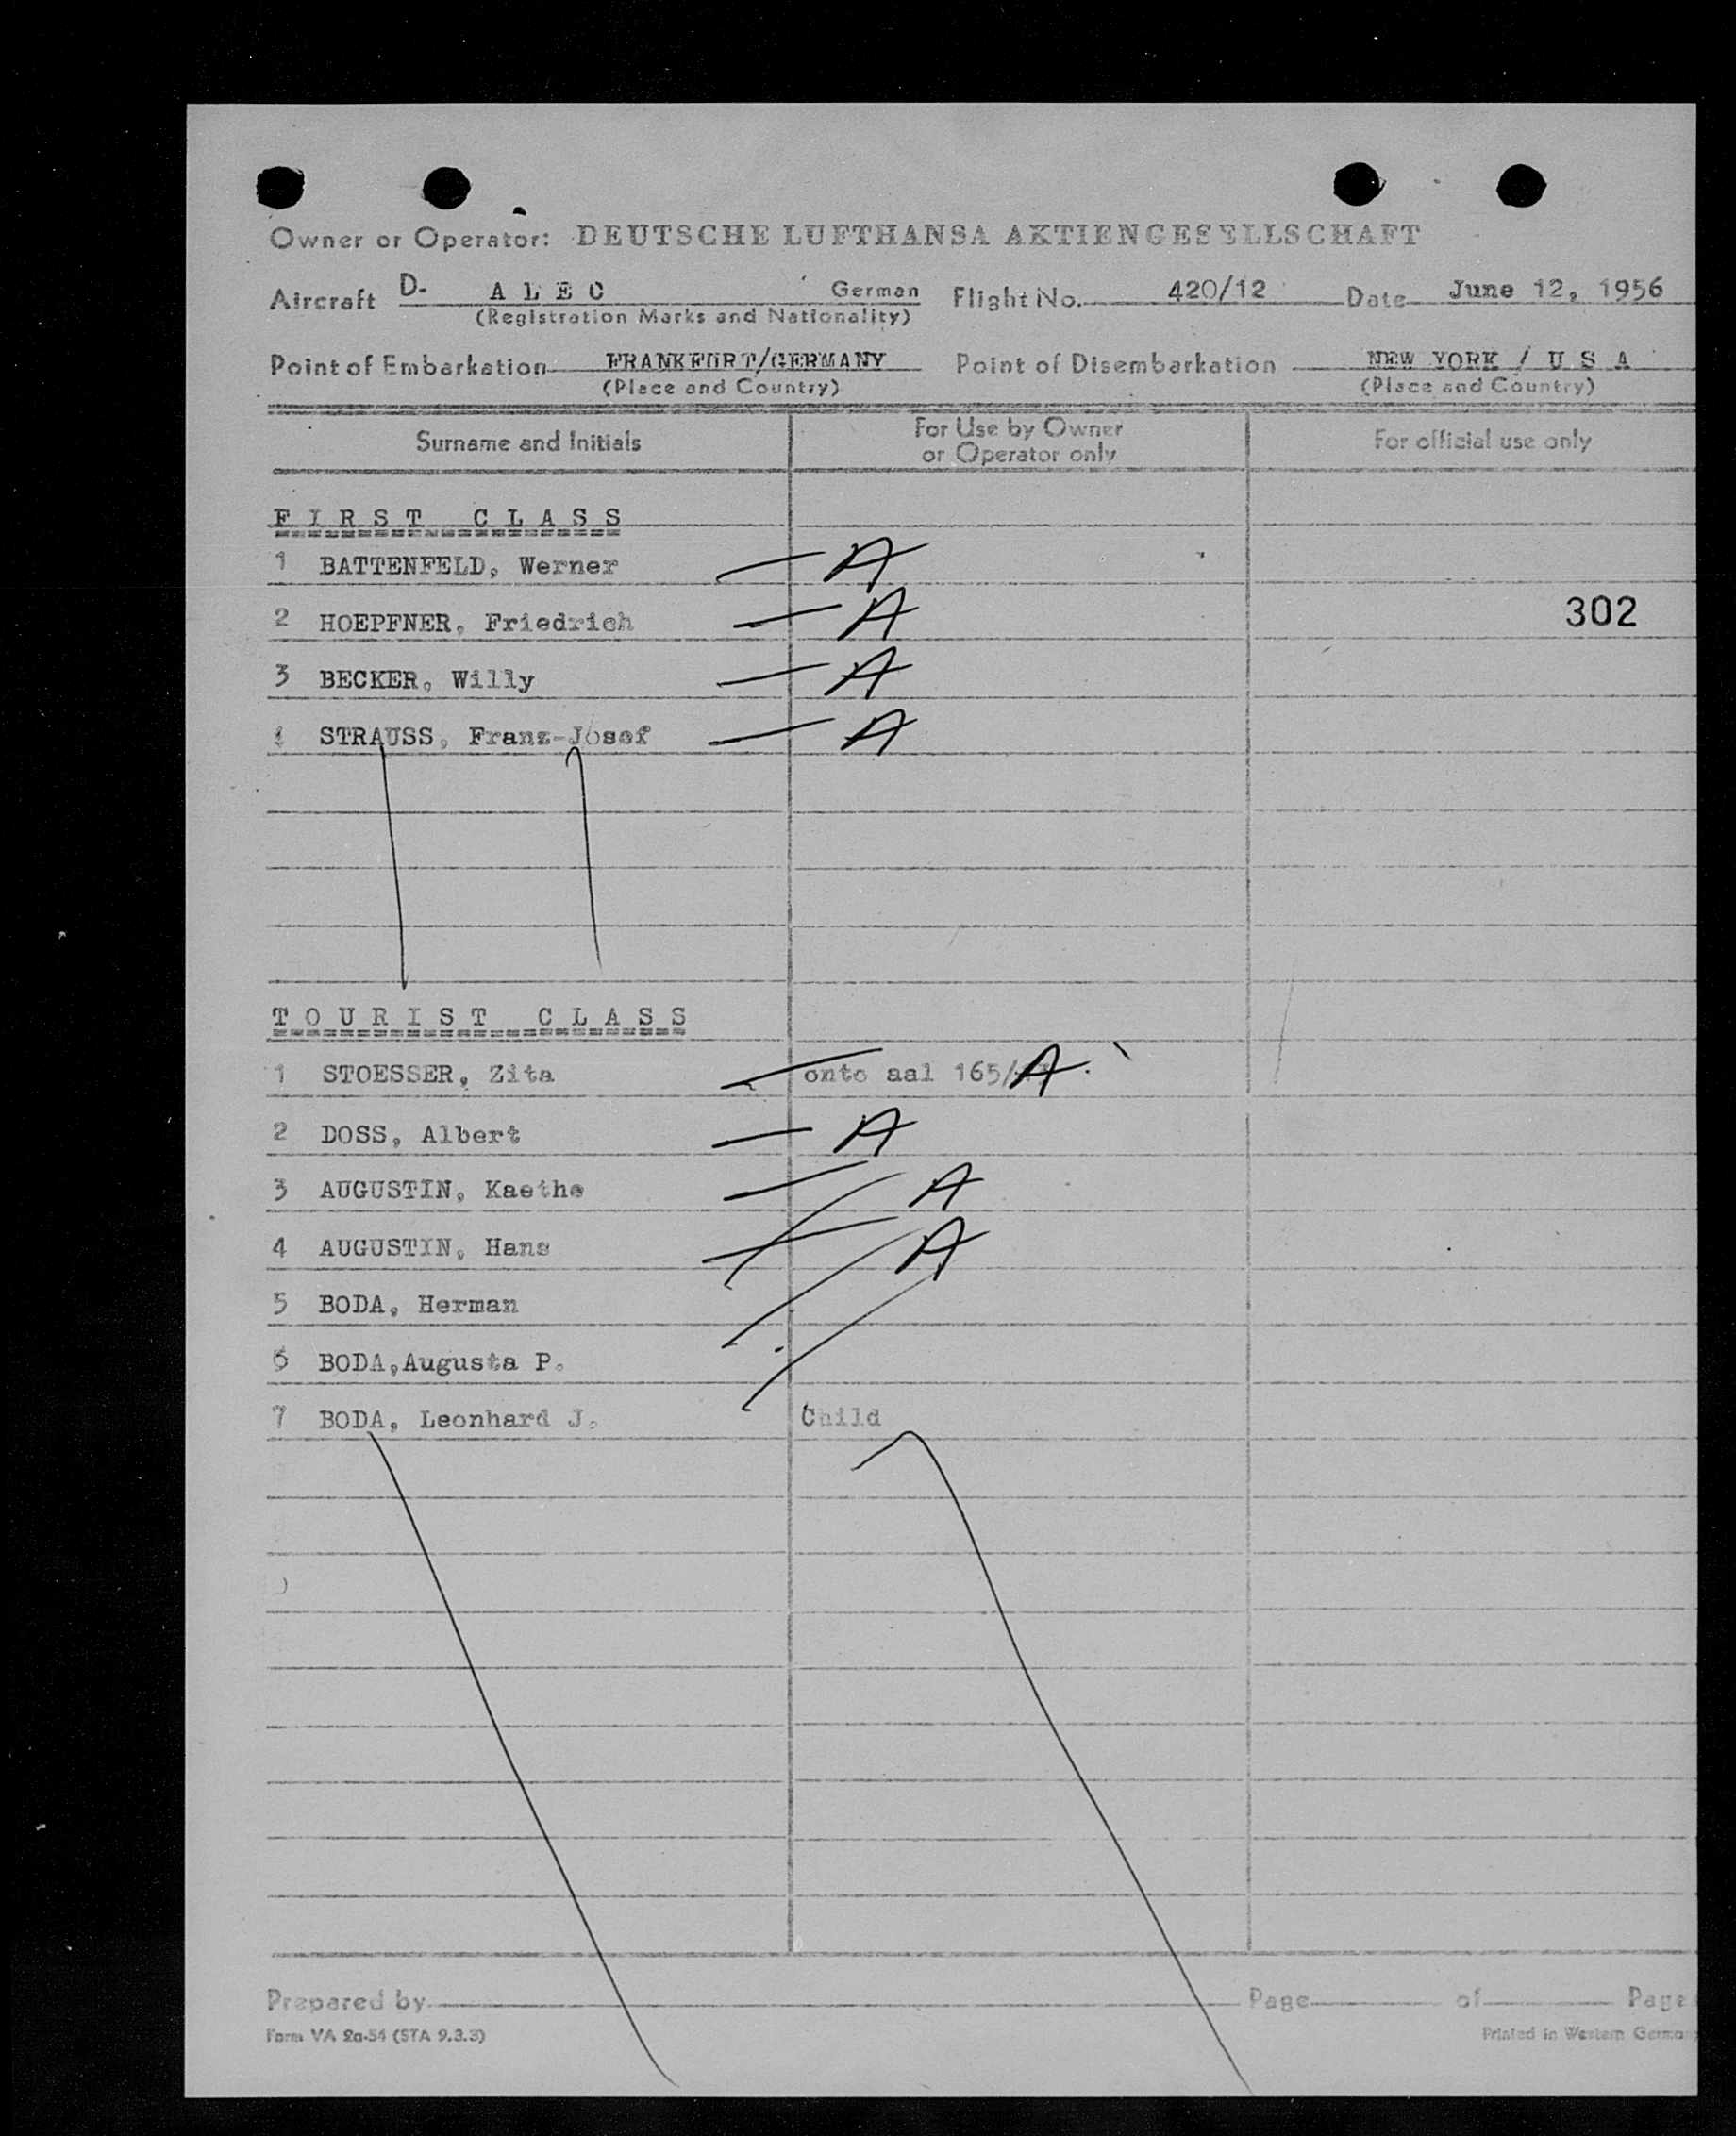 Owner or Operator: DEUTSCHE LUFTHANSA AKTIENGESELLSCHAFT
Aircraft D- A L E C German Flight No. 420/12 Date June 12, 1956
(Registration Marks and Nationality)
Point of Embarkation FRANKFURT/GERMANY Point of Disembarkation NEW YORK / U S A
(Place and Country) (Place and Country)
Surname and Initials For Use by Owner or Operator only For official use only
F I R S T C L A S S
1 BATTENFELD, Werner A
2 HOEPFNER, Friedrich A 302
3 BECKER, Willy A
4 STRAUSS, Franz-Josef A
T O U R I S T C L A S S
1 STOESSER, Zita onto aal 165/ A
2 DOSS, Albert A
3 AUGUSTIN, Kaethe A
4 AUGUSTIN, Hans A
5 BODA, Herman
6 BODA,Augusta P.
7 BODA, Leonhard J. Child
Prepared by Page of Page
Form VA 2a-54 (STA 9.3.3) Printed in Western